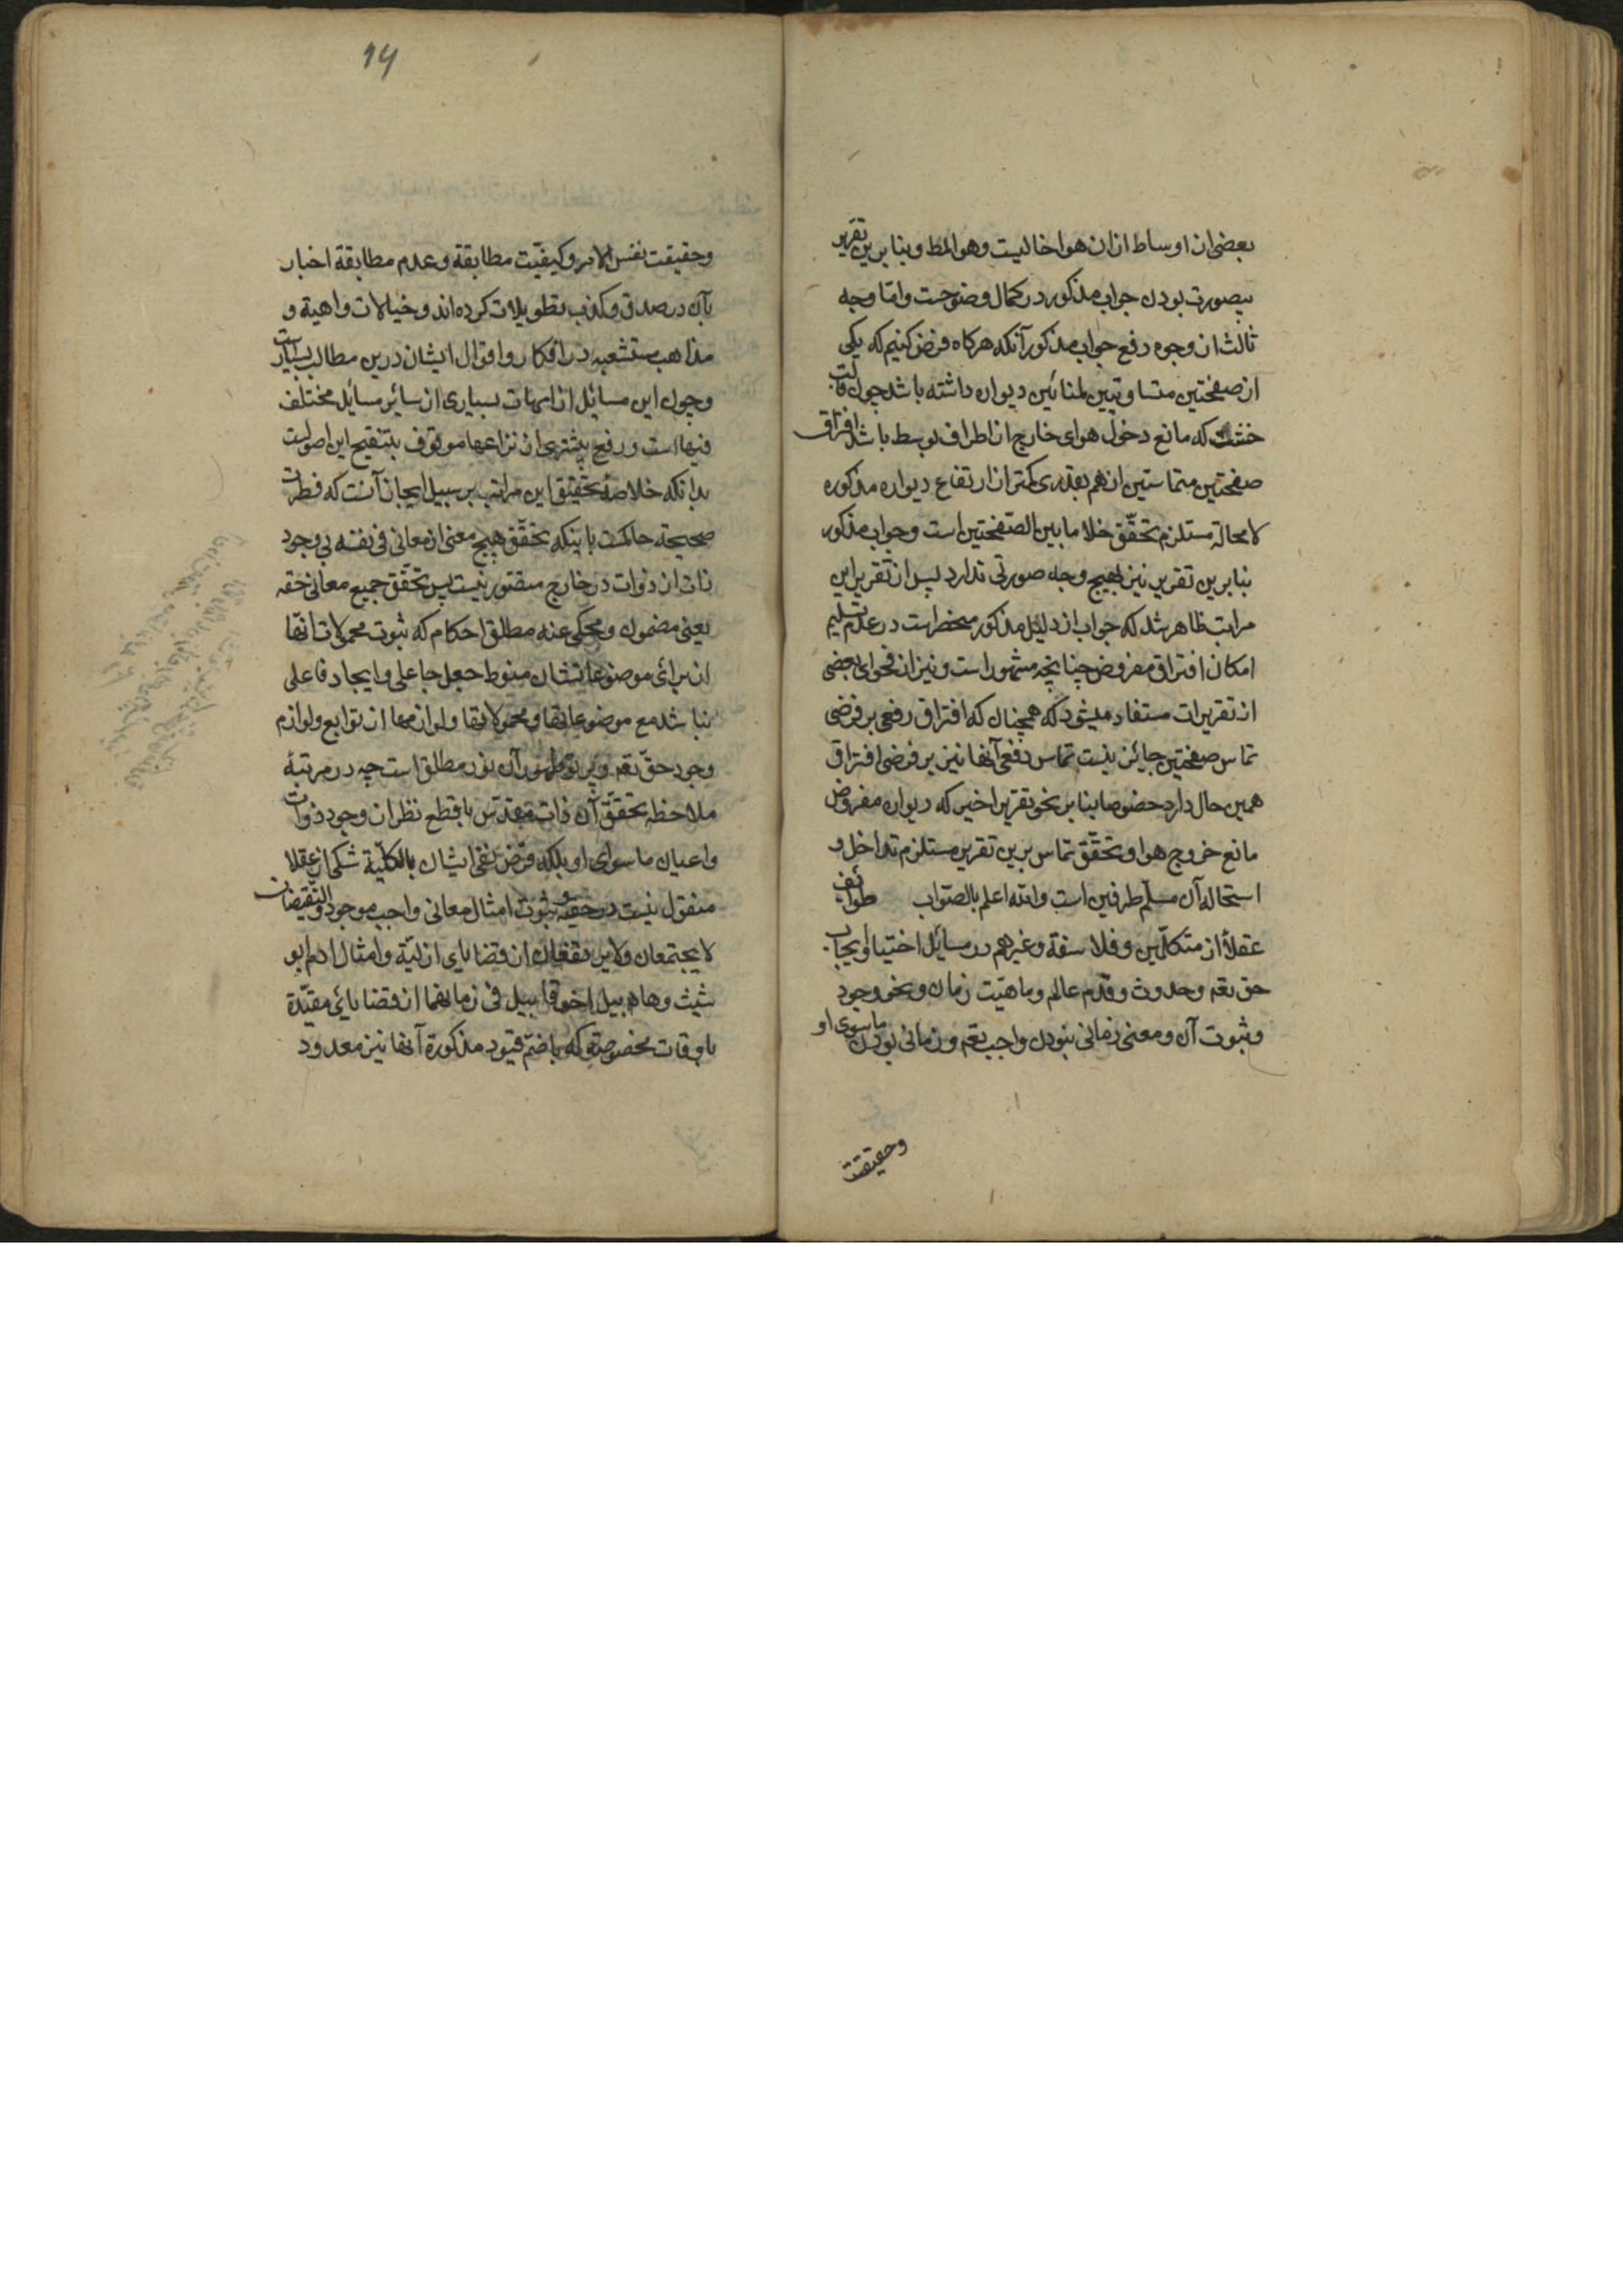 بعضی از اوساط ازان هوا خالیست و هو المط و بنا برین تقریر
بیصورت بودن جواب مذکور در کمال وضوحست و اما وجه
ثالث از وجوه دفع جواب مذکور آنکه هرکاه فرض کنیم که یکی
از صفحتین متساویتین لمنائین دیواره داشته باشد چون قالب
خشت که مانع دخول هوای خارج از اطراف بوسط باشد افتراق
صفحتین متماستین از هم بقدری کمتر از ارتفاع دیواره مذکوره
لا محالة مستلزم تحقّق خلا ما بین الصّفحتین است و جواب مذکور
بنا برین تقریر نیز بهیچ وجه صورتی ندارد پس از تقریر این
مراتب ظاهر شد که جواب از دلیل مذکور منحصر است در عدم تسلیم
امکان افتراق مفروض چنانچه مشهور است و نیز از فحوای بعضی
از تقریرات مستفاد میشود که همچنان که افتراق دفعی بر فرض
تماس صفحتین جائز نیست تماس دفعی آنها نیز بر فرض افتراق
همین حال دارد خصوصا بنا بر نحو تقریر اخیر که دیواره مفروض
مانع خروج هوا و تحقّق تماس برین تقریر مستلزم تداخل و
استحاله آن مسلّم طرفین است و الله اعلم بالصّواب طوایف
عقلاء از متکلّمین و فلاسفة و غیرهم در مسائل اختیار و ایجاب
حق تعم و حدوث و قدم عالم و ماهیّت زمان و نحو وجود
و ثبوت آن و معنی زمانی نبودن واجب تعم و زمانی بودن ماسوی او
وحقیقت
14
و حقیقت نفس الامر و کیفیّت مطابقة و عدم مطابقة اخبار
بآن در صدق و کذب تطویلات کرده اند و خیالات واهیة و
مذاهب متشعبه در افکار و اقوال ایشان درین مطالب بسیارست
و چون این مسائل از امهات بسیاری از سائر مسائل مختلف
فیها است و رفع بیشتری از نزاعها موقوف بتنقیح این اصولست
بدانکه خلاصهٔ تحقیق این مراتب بر سبیل ایجاز آنست که فطرت
صحیحة حاکمست باینکه تحقّق هیچ معنی از معانی فی نفسه بی وجود
ذات از ذوات در خارج متصّور نیست پس تحقّق جمیع معانی حقه
یعنی مضمون و محکی عنه مطلق احکام که ثبوت محمولات آنها
از برای موضوعاتشان منوط بجعل جاعلی و ایجاد فاعلی
نباشد مع موضوعاتها و محمولاتها و لوازمها از توابع و لوازم
وجود حقّ تعم و پرتو ظهور آن نور مطلق است چه در مرتبهٔ
ملاحظه تحقّق آن ذات مقدّس با قطع نظر از وجود ذوات
و اعیان ماسوای او بلکه فرض نفی ایشان بالکلّیّة شکی از عقلا
منقول نیست در حقیّه و ثبوت امثال معانی واجب موجود و النّقیضان
لا یجتمعان و لا یرتفعان از قضایای ازلیّة و امثال ادم ابو
شیث و هابیل اخو قابیل فی زمانهما از قضایائی مقیّدة
باوقات مخصوصة که با ضمّ قیود مذکورة آنها نیز معدود